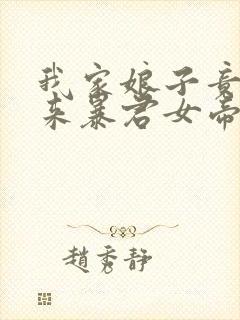 我家娘子竟
来暴君女帝
趙秀静